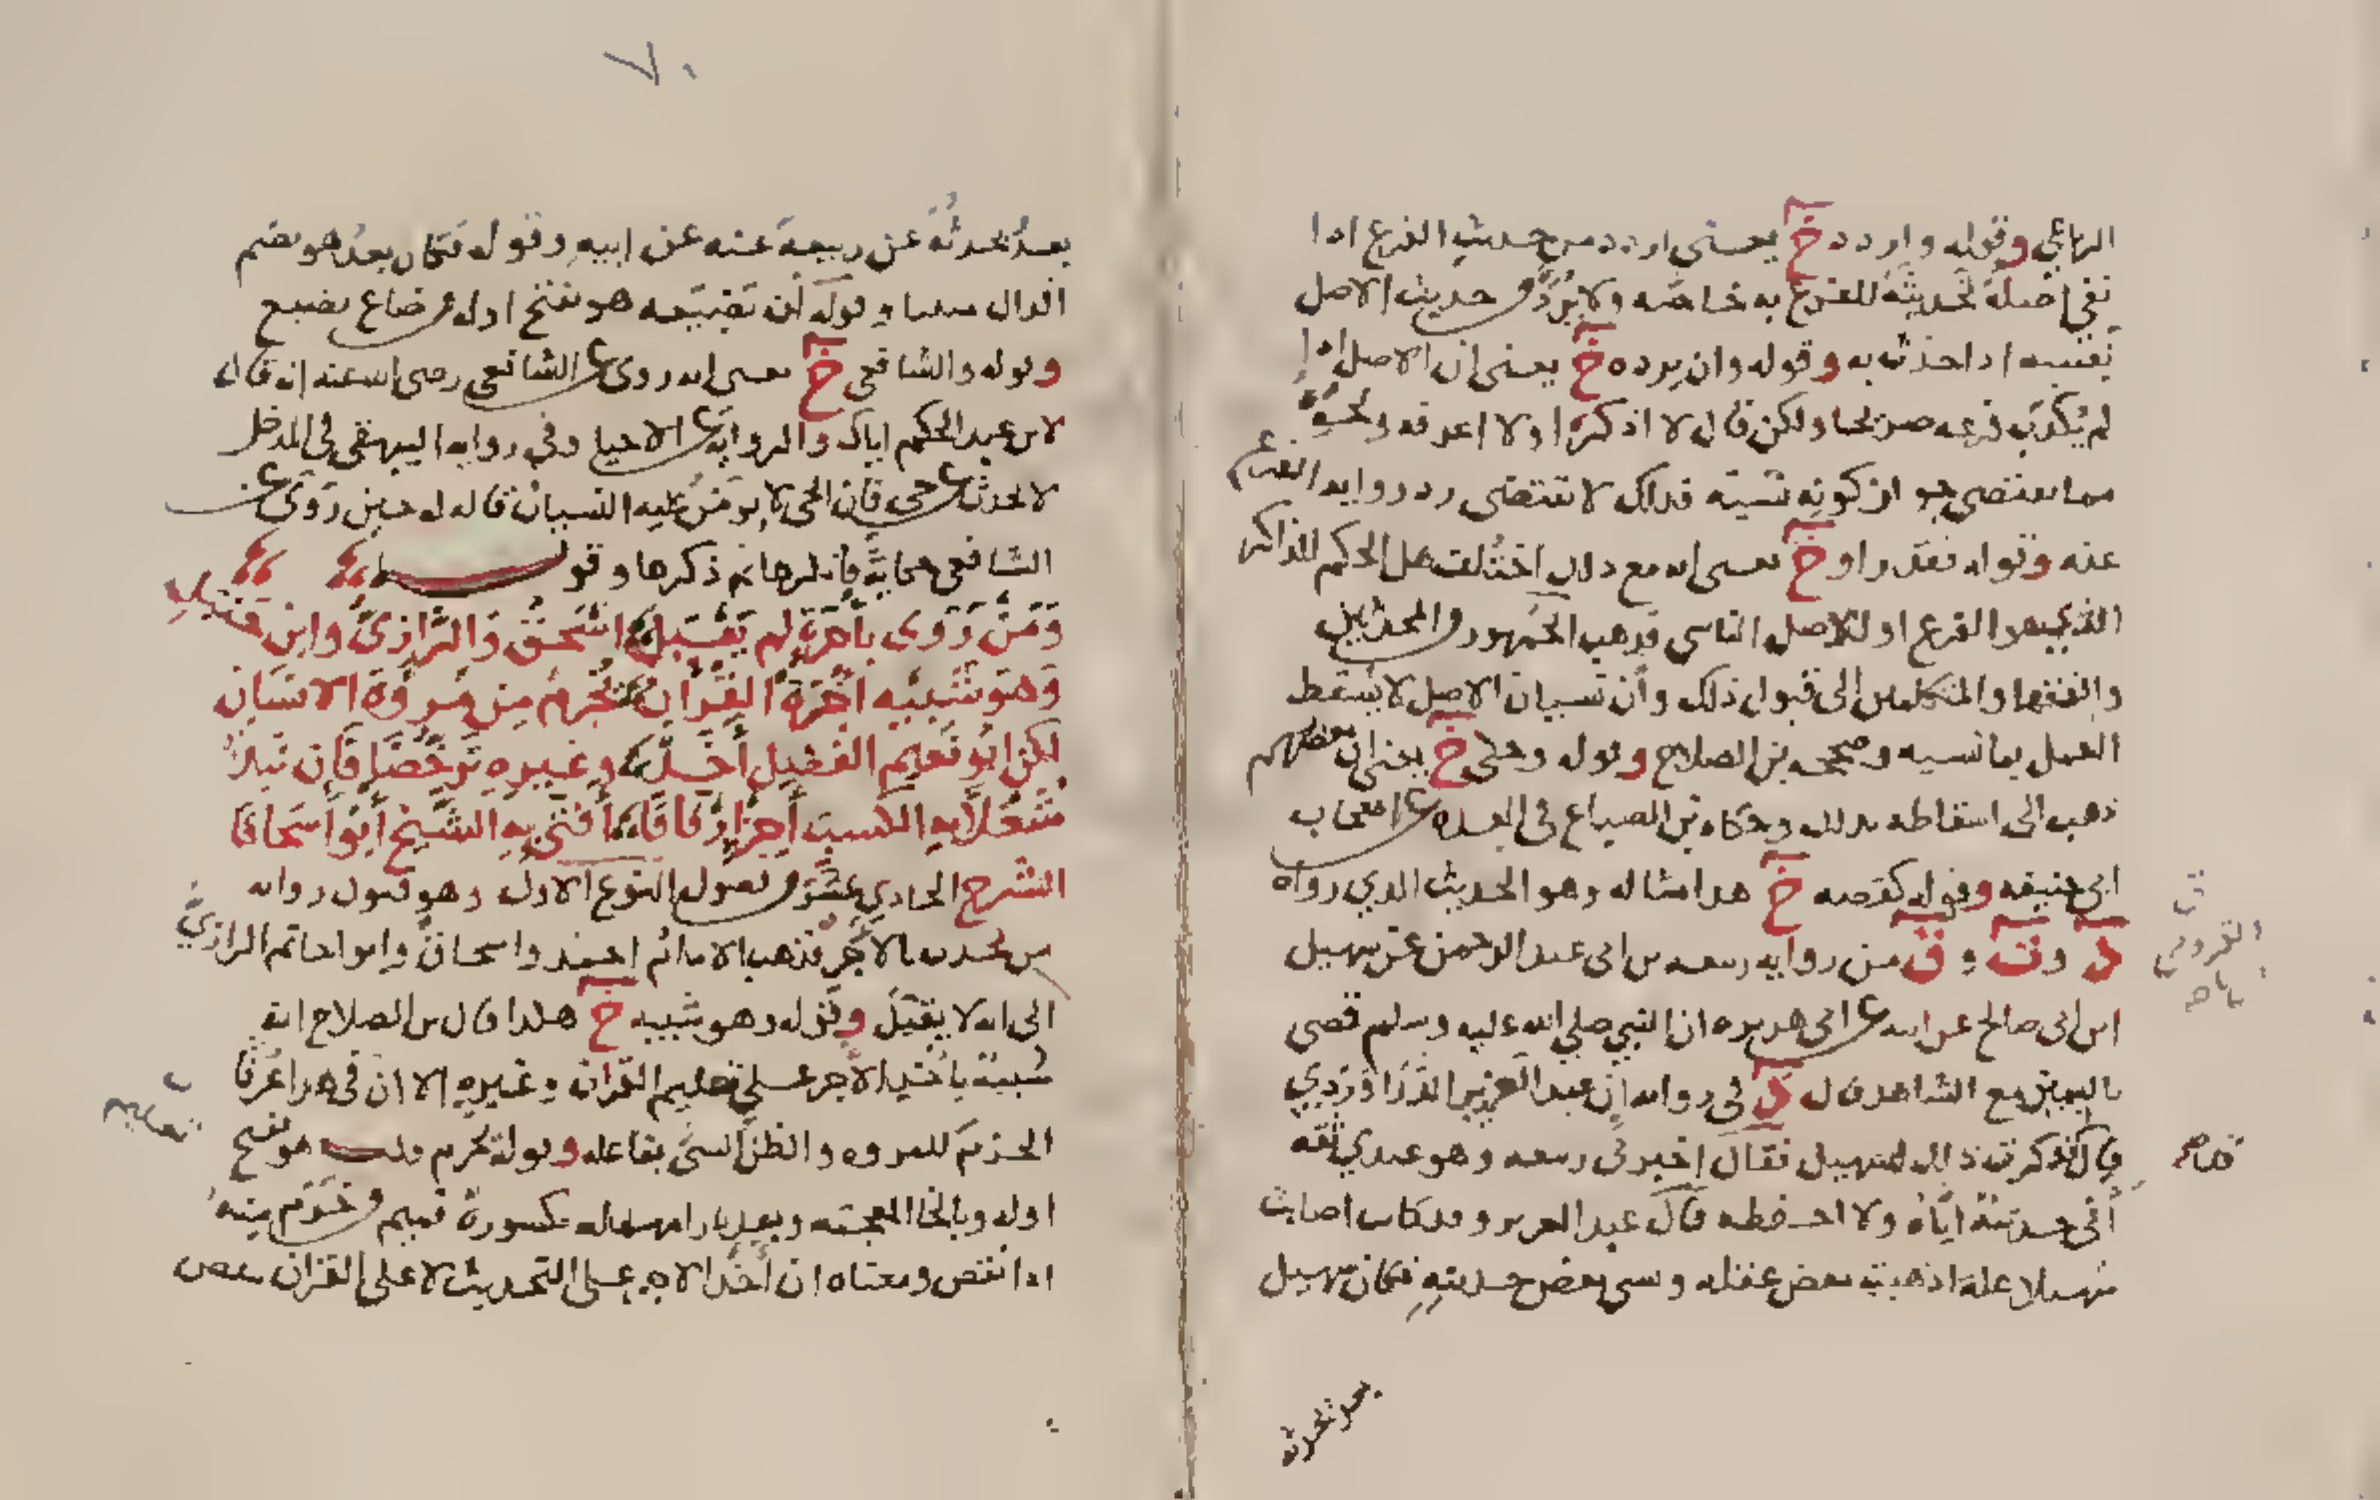 الراعي وقوله واردد خ يعني اردد من حديث الفرع اذا
نفى اصله تحديثه للفرع به خاصه ولا يرد من حديث الاصل
نفسه اذا حدث به وقوله وان يرده خ يعني ان الاصل اذا
لم يكذب فرعه صريحا ولكن قال لا اذكر او لا اعرفه ونحوه
مما يقتضي جواز كونه نسيه فذلك لا يقتضي رد رواية الفرع
عنه وقوله فقد راو خ يعني انه مع ذلك اختلف هل الحكم للذاكر
الذي هو الفرع او للاصل الناسي فذهب الجمهور من المحدثين
والفقها والمتكلمين الى قبول ذلك وان نسيان الاصل لا يسقط
العمل بما نسيه وصححه بن الصلاح وقوله وحكي خ يعني ان بعضهم
ذهب الى اسقاطه بذلك وحكاه بن الصباغ في العده عن اصحاب
ابي حنيفه وقوله كقصه خ هذا مثاله وهو الحديث الذي رواه
د وت و ق من روايه ربيعه بن ابي عبد الرحمن عن سهيل
ابن ابي صالح عن ابيه عن ابي هريره ان النبي صلي الله عليه وسلم قضى
باليمين مع الشاهد قال د في روايه ان عبد العزيز الدراوردي
قال فذكرت ذلك لسهيل فقال اخبرني ربيعه وهو عندي ثقه
اني حدثته اياه ولا احفظه قال عبد العزيز وقد كان اصابت
سهيلا علة اذهبت بعض عقله ونسي بعض حديثه فكان سهيل
٧٠
بعد يحدثه عن ربيعه عنه عن ابيه وقوله فكان بعد هو بضم
الدال وقوله لن تضيعه هو بفتح اوله من ضاع يضيع
وقوله والشافعي خ يعني انه روى عن الشافعي رضي الله عنه انه قال
لابن عبد الحكم اياك والروايه عن الاحيا وفي روايه البيهقي في المدخل
لا تحدث عن حي فان الحي لا يومن عليه النسيان قاله له حين روى عن
الشافعي حكاية فانكرها ثم ذكرها وقو
ومن روى باجرة لم يقبل اسحق والرازي وابن حنبل
وهو شبيه اجرة القران يخرم من مروة الانسان
لكن ابو نعيم الفضيل اخذ وغيره ترخصا فان نبذ
شغلا به الكسب اجز ارفاقا افتى به الشيخ ابو اسحاقا
الشرح الحادي عشر من فصول النوع الاول وهو قبول روايه
من يحدث بالاجر فذهب الامام احمد واسحاق وابو حاتم الرازي
الى انه لا يقبل وقوله وهو شبيه خ هكذا قال بن الصلاح انه
شبيه باخذ الاجر على تعليم القران وغيره الا ان في هذا عرفا
الخرم للمروه والظن السي بفاعله وقوله يخرم قلت هو بفتح
اوله وبالخا المعجمه وبعد را مهمله مكسورة فميم من خرم منه
اذا نقص ومعناه ان اخذ الاجر على التحديث لا على القران ينقص